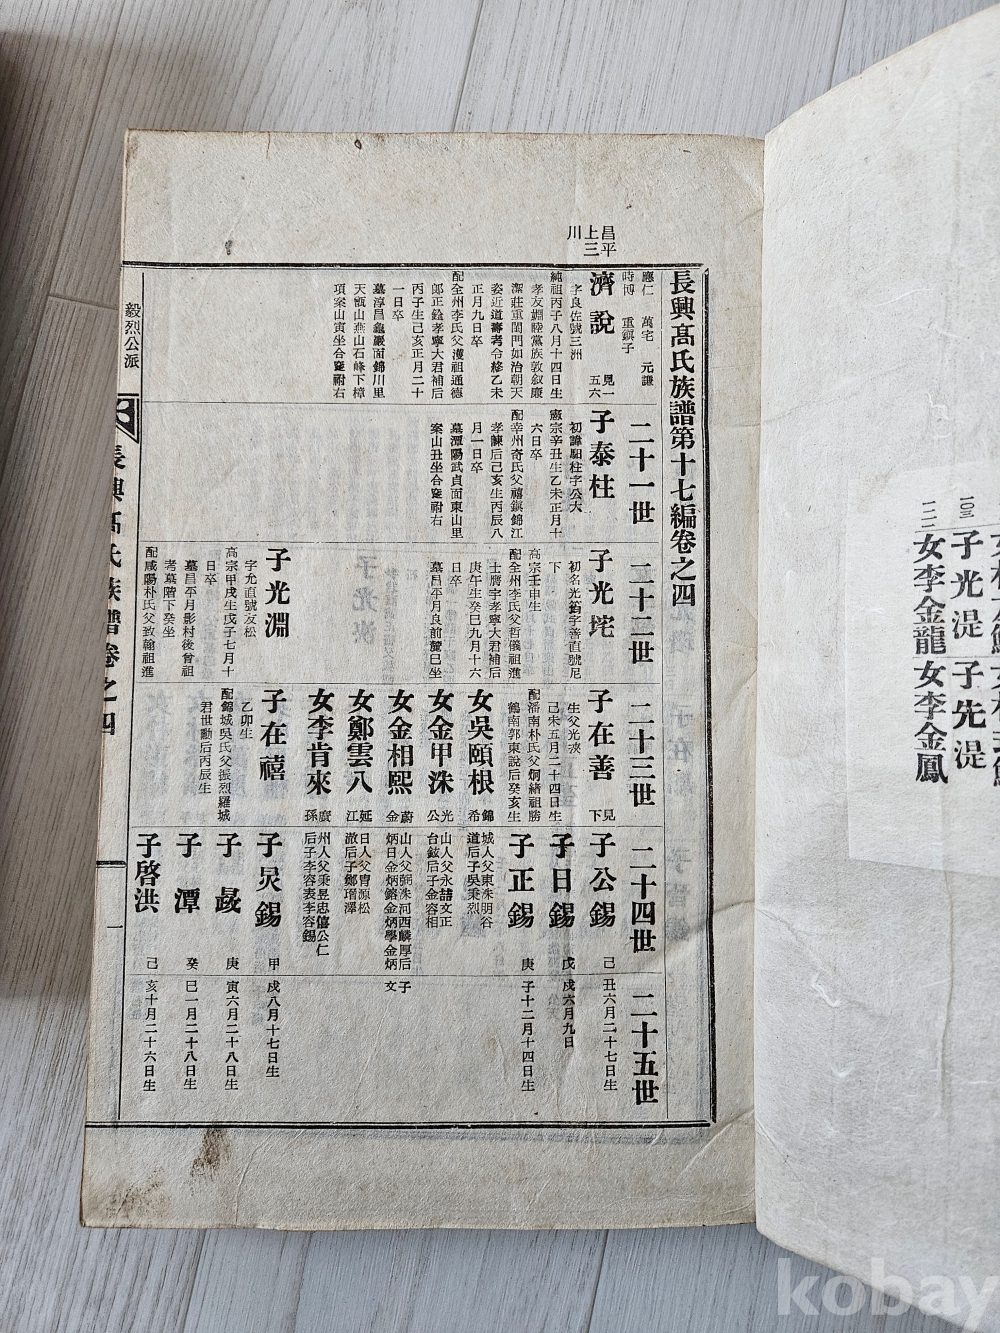 昌平
上三
川
長興髙氏族譜第十七編卷之四
應仁 萬宅 元謙
時博 重鎭子
濟說 見一五六
字良佐號三洲
純祖丙子八月十四日生
孝友婣睦黨族敦叙廉
潔莊重閨門如治朝天
姿近道壽考令終乙未
正月九日卒
配全州李氏父濩祖通德
郞正銓孝寧大君補后
丙子生己亥正月二十
一日卒
墓淳昌龜巖面錦川里
天甑山燕山石峰下樟
項案山寅坐合窆祔右
二十一世
子泰柱
初諱駬柱字公大
憲宗辛丑生乙未正月十
六日卒
配幸州奇氏父禧鎭錦江
孝諫后己亥生丙辰八
月一日卒
墓潭陽武貞面東山里
案山丑坐合窆祔右
二十二世
子光垞
初名光筠字善直號尼
下
高宗壬申生
配全州李氏父哲儀祖進
士膺宇孝寧大君補后
庚午生癸巳九月十六
日卒
墓昌平月良前麓巳坐
子光淵
字允直號友松
高宗甲戌生戊子七月十
日卒
墓昌平月影村後曾祖
考墓階下癸坐
配咸陽朴氏父致翰祖進
二十三世
子在善 見下
生父光浹
己未五月二十四日生
配潘南朴氏父炯緖祖勝
鶴南郭東說后癸亥生
女吳頤根 錦希
女金甲洙 光公
女金相熙 蔚金
女鄭雲八 延江
女李肯來 廣孫
子在禧
乙卯生
配錦城吳氏父振烈羅城
君世勳后丙辰生
二十四世
子公錫 己
子日錫 戊
子正錫 庚
城人父東洙明谷
道后子吳秉烈
山人父永喆文正
台鉉后子金容相
山人父弼洙河西麟厚后子
炳日金炳鎔金炳學金炳文
日人父胄源松
澈后子鄭瑨澤
州人父秉昱忠僖公仁
后子李容表李容錫
子炅錫 甲
子晸 庚
子潭 癸
子啓洪 己
二十五世
丑六月二十七日生
戌六月九日
子十二月十四日生
戌八月十七日生
寅六月二十八日生
巳一月二十八日生
亥十月二十六日生
毅烈公派
長興髙氏族譜卷之四
一
子光湜
女李金龍
子先湜
女李金鳳
kobay